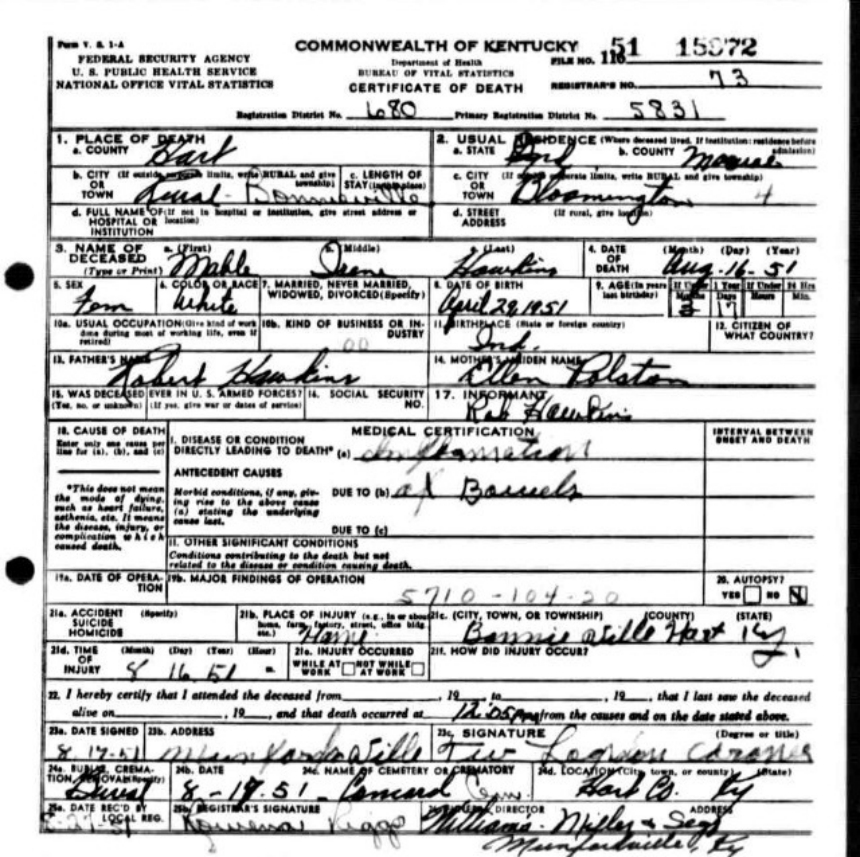 Form V. S. 1-A
COMMONWEALTH OF KENTUCKY
FILE NO. 116 51 15972
FEDERAL SECURITY AGENCY
U. S. PUBLIC HEALTH SERVICE
NATIONAL OFFICE VITAL STATISTICS
Department of Health
BUREAU OF VITAL STATISTICS
CERTIFICATE OF DEATH
REGISTRAR'S NO. 73
Registration District No. 680 Primary Registration District No. 5831
1. PLACE OF DEATH
a. COUNTY Hart
2. USUAL RESIDENCE (Where deceased lived. If institution: residence before admission)
a. STATE Ind b. COUNTY Monroe
b. CITY (If outside corporate limits, write RURAL and give township)
OR TOWN Rural - Bonnieville
c. LENGTH OF STAY (in this place)
c. CITY (If outside corporate limits, write RURAL and give township)
OR TOWN Bloomington 4
d. FULL NAME OF (If not in hospital or institution, give street address or location)
HOSPITAL OR INSTITUTION
d. STREET ADDRESS (If rural, give location)
3. NAME OF DECEASED (Type or Print)
a. (First) Mable
b. (Middle) Irene
c. (Last) Hawkins
4. DATE OF DEATH (Month) (Day) (Year)
Aug-16-51
5. SEX
Fem
6. COLOR OR RACE
White
7. MARRIED, NEVER MARRIED, WIDOWED, DIVORCED (Specify)
8. DATE OF BIRTH
April 29, 1951
9. AGE (In years last birthday)
If Under 1 Year Months Days
3 17
If Under 24 Hrs Hours Min.
10a. USUAL OCCUPATION (Give kind of work done during most of working life, even if retired)
10b. KIND OF BUSINESS OR INDUSTRY
00
11. BIRTHPLACE (State or foreign country)
Ind.
12. CITIZEN OF WHAT COUNTRY?
13. FATHER'S NAME
Robert Hawkins
14. MOTHER'S MAIDEN NAME
Ellen Polston
15. WAS DECEASED EVER IN U. S. ARMED FORCES?
(Yes, no, or unknown) (If yes, give war or dates of service)
16. SOCIAL SECURITY NO.
17. INFORMANT
Rob Hawkins
18. CAUSE OF DEATH
Enter only one cause per line for (a), (b), and (c)
MEDICAL CERTIFICATION
INTERVAL BETWEEN ONSET AND DEATH
I. DISEASE OR CONDITION
DIRECTLY LEADING TO DEATH* (a) Inflamation
*This does not mean the mode of dying, such as heart failure, asthenia, etc. It means the disease, injury, or complication which caused death.
ANTECEDENT CAUSES
Morbid conditions, if any, giving rise to the above cause (a) stating the underlying cause last.
DUE TO (b) of Bowels
DUE TO (c)
II. OTHER SIGNIFICANT CONDITIONS
Conditions contributing to the death but not related to the disease or condition causing death.
19a. DATE OF OPERATION
19b. MAJOR FINDINGS OF OPERATION
5710-104-20
20. AUTOPSY?
YES NO
21a. ACCIDENT SUICIDE HOMICIDE (Specify)
21b. PLACE OF INJURY (e.g., in or about home, farm, factory, street, office bldg. etc.)
Home
21c. (CITY, TOWN, OR TOWNSHIP) (COUNTY) (STATE)
Bonnieville Hart Ky.
21d. TIME OF INJURY (Month) (Day) (Year) (Hour)
8 16 51 m
21e. INJURY OCCURRED
WHILE AT WORK NOT WHILE AT WORK
21f. HOW DID INJURY OCCUR?
22. I hereby certify that I attended the deceased from , 19 , to , 19 , that I last saw the deceased
alive on , 19 , and that death occurred at 12:05 Pm, from the causes and on the date stated above.
23a. DATE SIGNED
8-17-51
23b. ADDRESS
Munfordville
23c. SIGNATURE (Degree or title)
Logsdon Coroner
24a. BURIAL, CREMATION, REMOVAL (Specify)
Burial
24b. DATE
8-17-51
24c. NAME OF CEMETERY OR CREMATORY
Concord Cem
24d. LOCATION (City, town, or county) (State)
Hart Co. Ky
25a. DATE REC'D BY LOCAL REG.
25b. REGISTRAR'S SIGNATURE
Riggs
DIRECTOR ADDRESS
Williams-Miller &
Munfordville, Ky